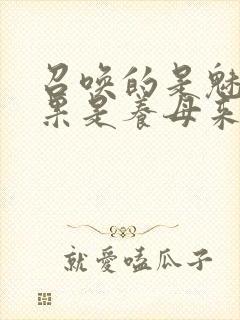 召唤的是魅
果是养母来
就爱嗑瓜子